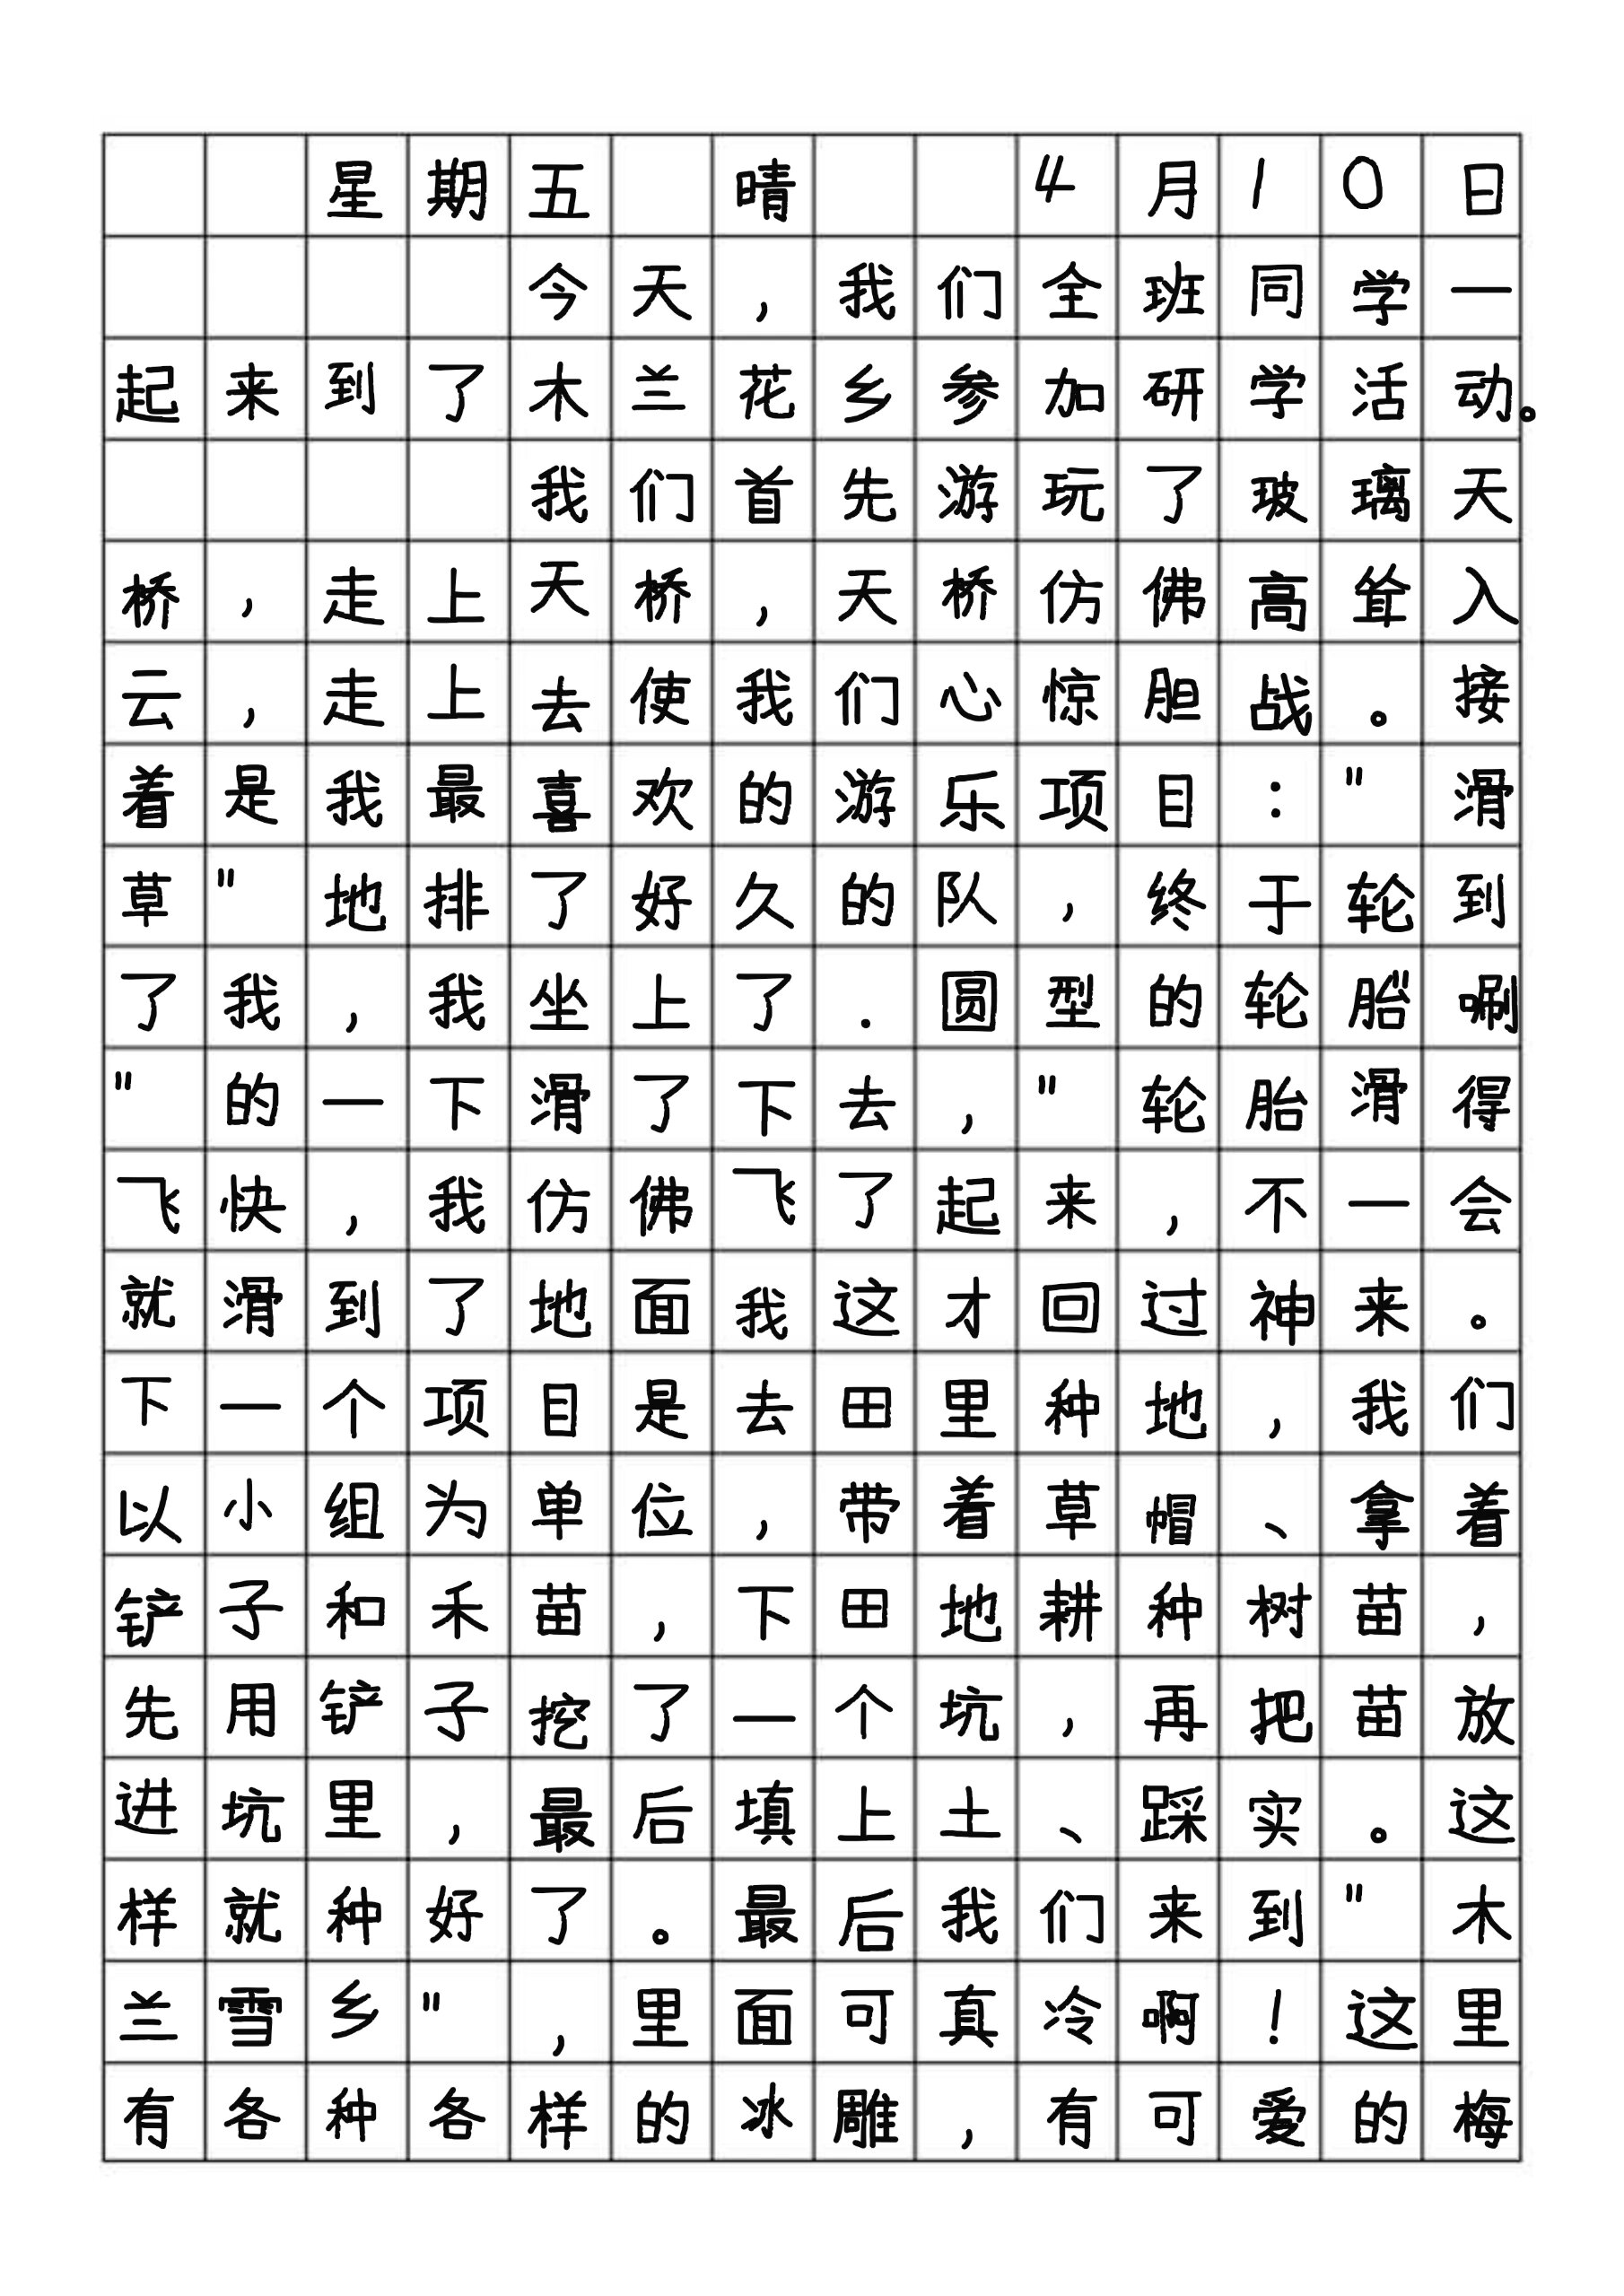 星期五 晴 4月10日
今天,我们全班同学一
起来到了木兰花乡参加研学活动。
我们首先游玩了玻璃天
桥,走上天桥,天桥仿佛高耸入
云,走上去使我们心惊胆战。接
着是我最喜欢的游乐项目:"滑
草"地排了好久的队,终于轮到
了我,我坐上了.圆型的轮胎"唰
"的一下滑了下去,"轮胎滑得
飞快,我仿佛飞了起来,不一会
就滑到了地面我这才回过神来。
下一个项目是去田里种地,我们
以小组为单位,带着草帽、拿着
铲子和禾苗,下田地耕种树苗,
先用铲子挖了一个坑,再把苗放
进坑里,最后填上土、踩实。这
样就种好了。最后我们来到"木
兰雪乡",里面可真冷啊!这里
有各种各样的冰雕,有可爱的梅